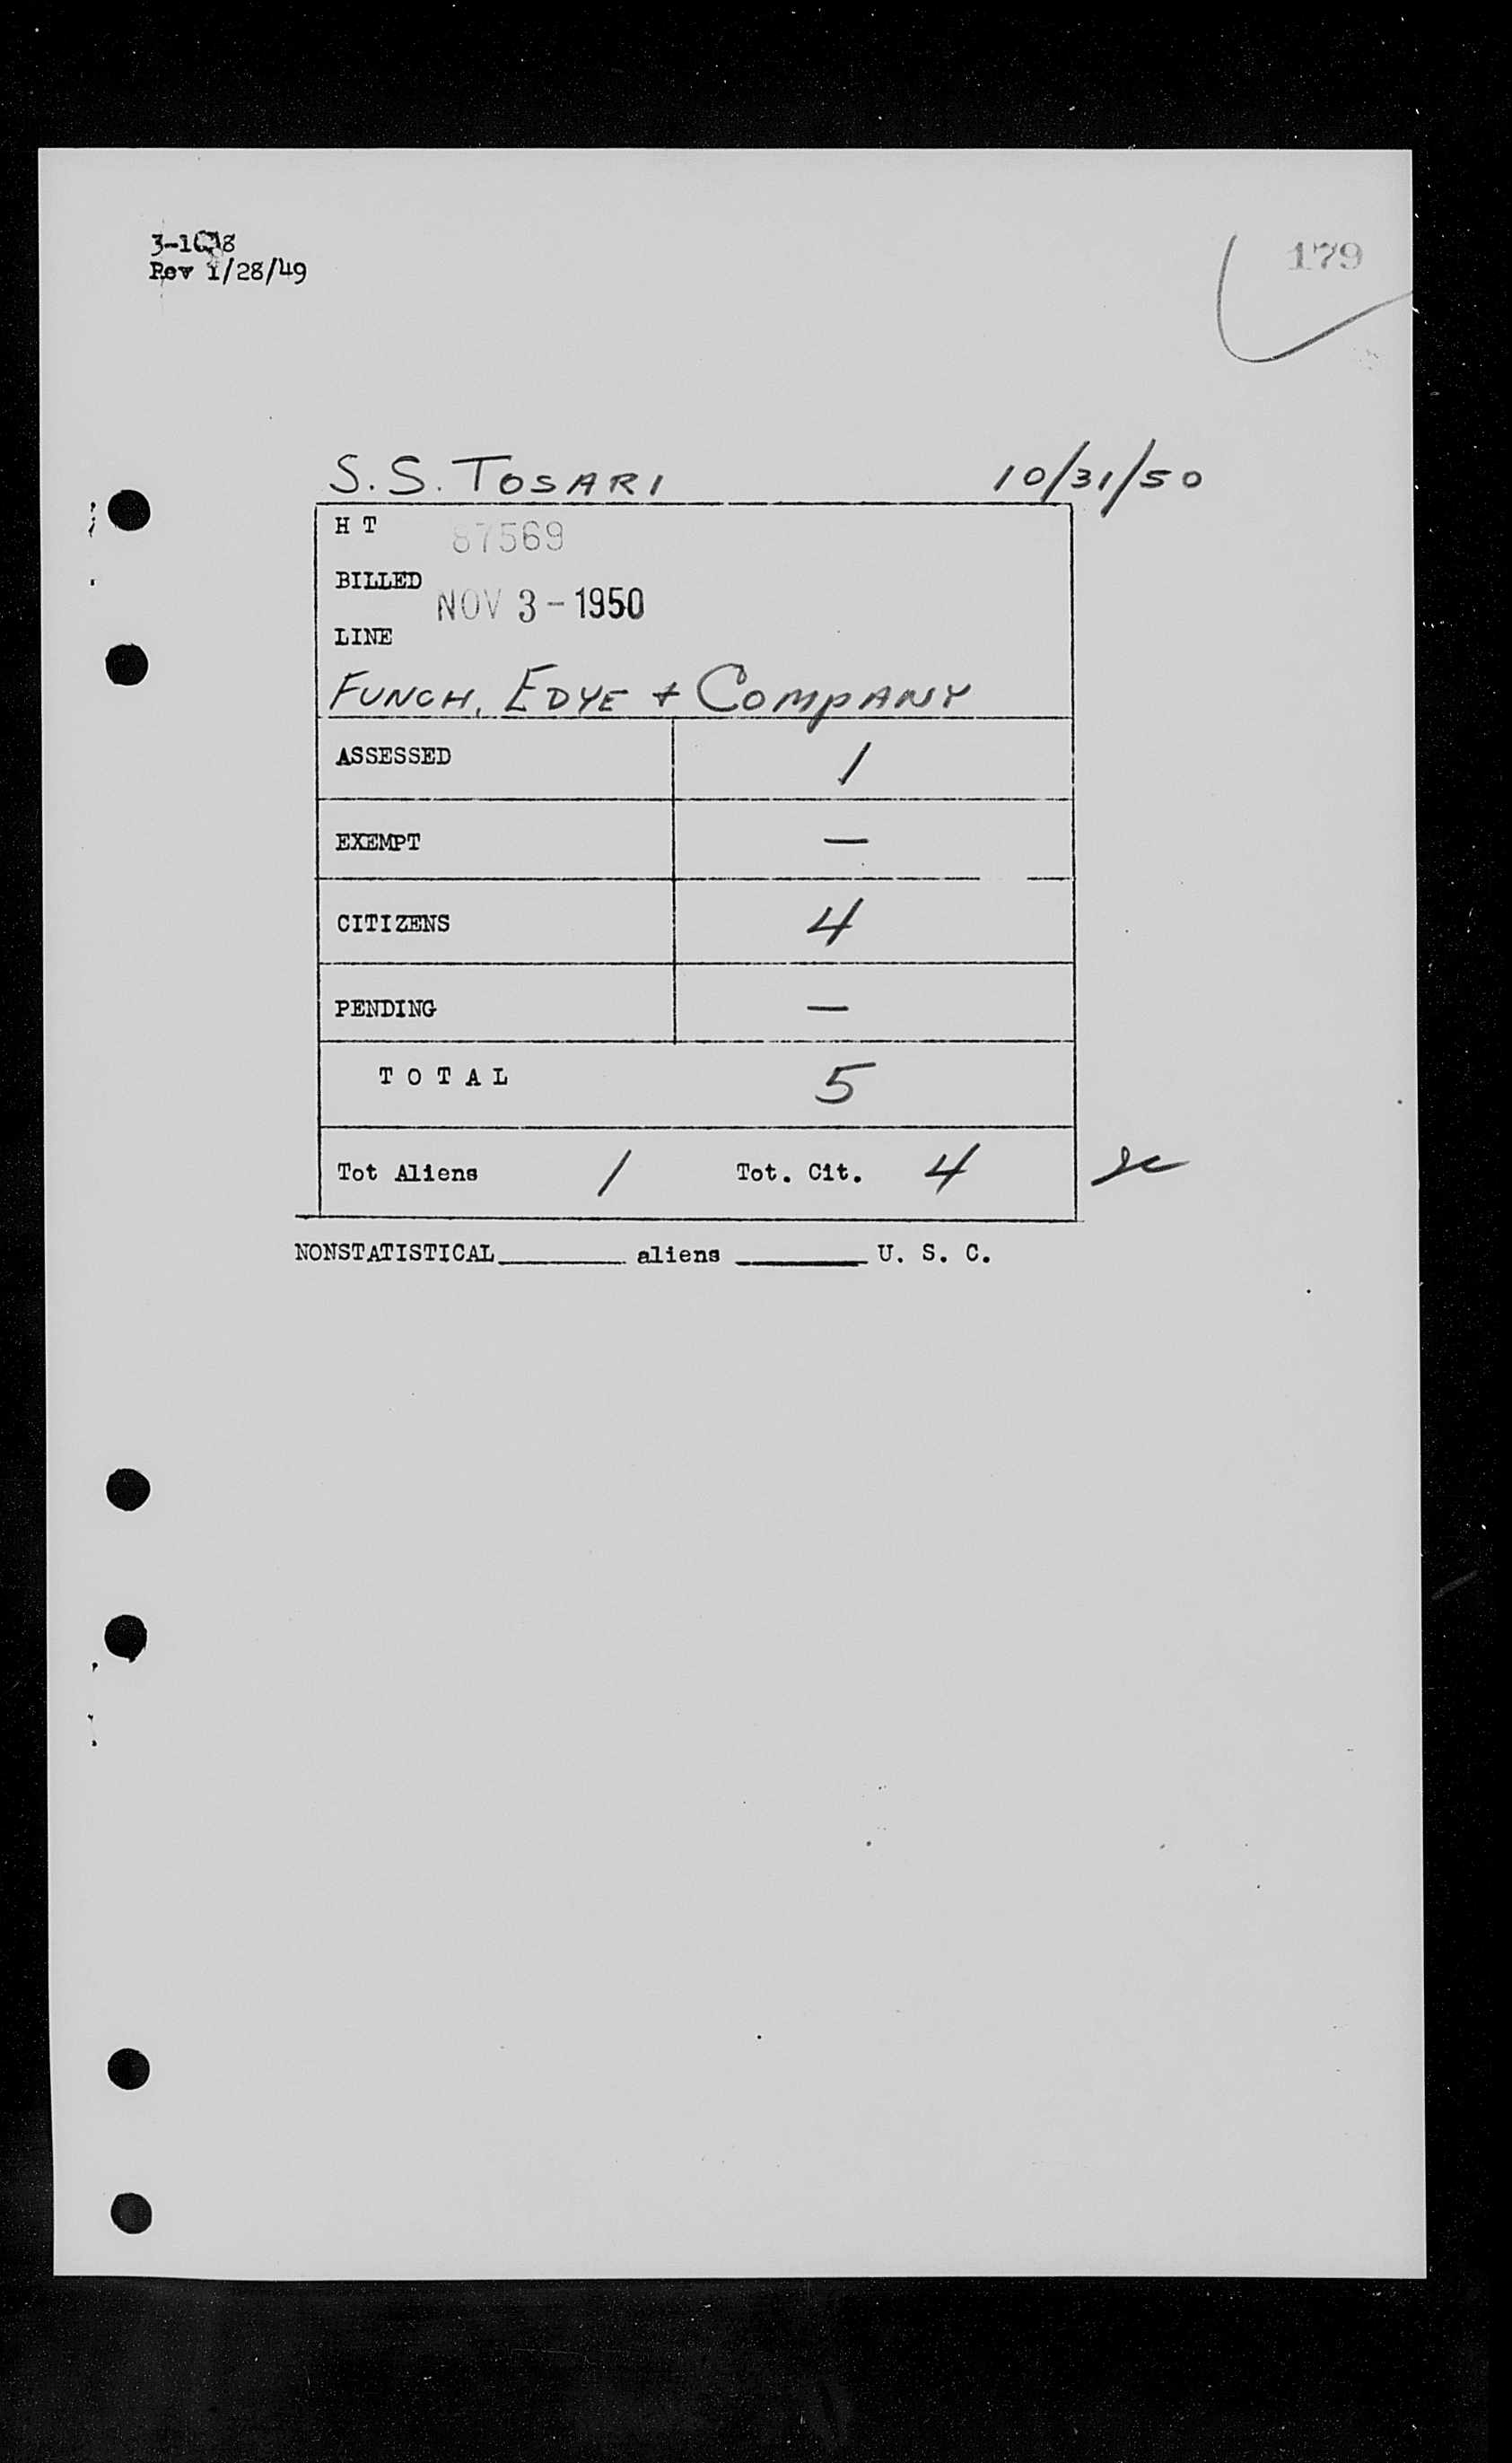 179
Rev 1/28/49
S.S. TOSARI 10/31/50
H T 87569
BILLED
NOV 3 - 1950
LINE
FUNCH, EDYE + COMPANY
ASSESSED 1
EXEMPT —
CITIZENS 4
PENDING —
T O T A L 5
Tot Aliens 1 Tot. Cit. 4
NONSTATISTICAL________ aliens ________ U. S. C.